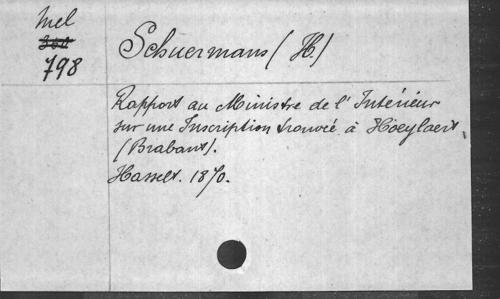 Mel
360
798
Schuermans (H.)
Rapport au Ministre de l'Intérieur
sur une Inscription trouvée à Hoeylaert
(Brabant).
Hasselt. 1870.